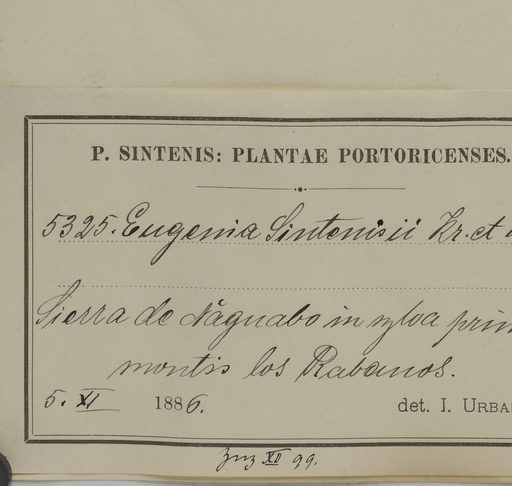 P. SINTENIS: PLANTAE PORTORICENSES.
5325. Eugenia Sintenisii Kr. et
Sierra de Naguabo in sylva prim
montis los Rabanos.
5. XI 1886. det. I. URBA
XII 99.